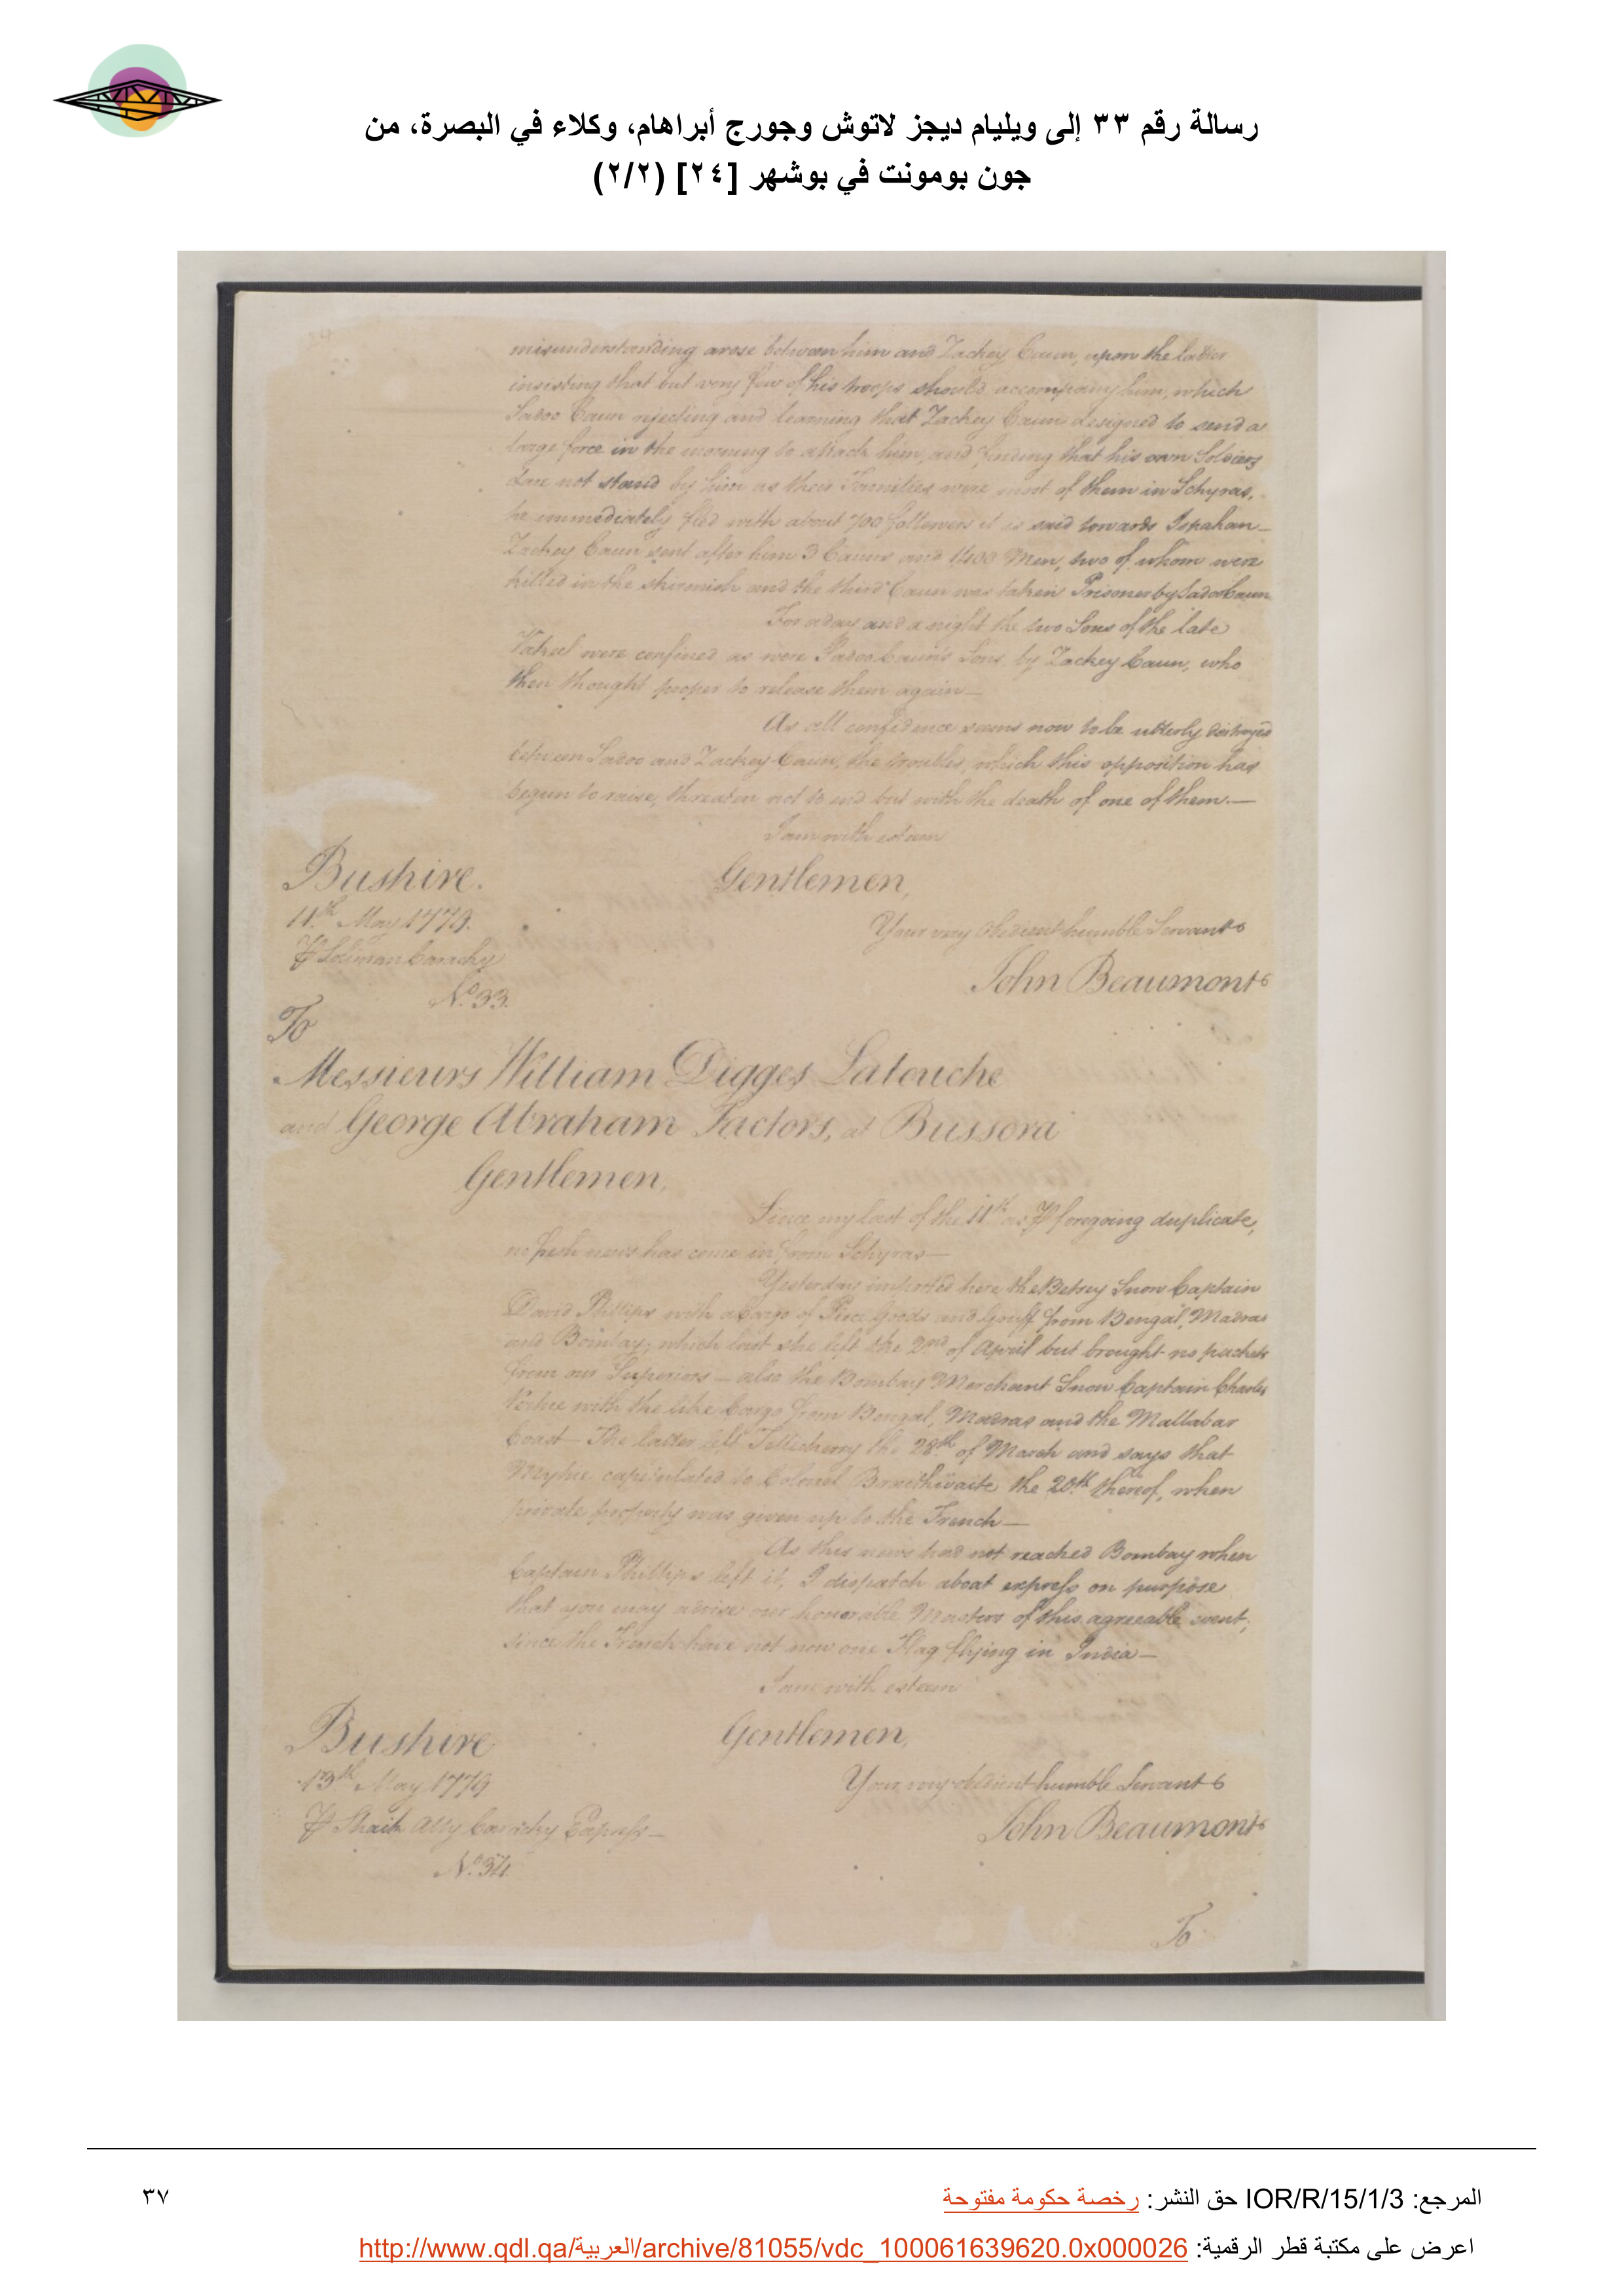 رسالة رقم ٣٣ إلى ويليام ديجز لاتوش وجورج أبراهام، وكلاء في البصرة، من
جون بومونت في بوشهر [٢٤] (٢/٢)
misunderstanding arose between him and Zackey Caun, upon the latter
insisting that but very few of his troops should accompany him, which
Sadoo Caun rejecting and learning that Zackey Caun designed to send a
large force in the morning to attack him, and finding that his own Soldiers
dare not stand by him as their Families were most of them in Schyras,
he immediately fled with about 700 followers it is said towards Ispahan—
Zackey Caun sent after him 3 Cauns and 1400 Men, two of whom were
killed in the skirmish and the third Caun was taken Prisoner by Sadoo Caun
For a day and a night the two Sons of the late
Vakeel were confined as were Sadoo Caun's Sons by Zackey Caun, who
then thought proper to release them again—
As all confidence seems now to be utterly destroyed
between Sadoo and Zackey Caun, the troubles, which this opposition has
begun to raise, threaten not to end but with the death of one of them.—
I am with esteem
Bushire. Gentlemen,
11th May 1779. Your very obedient humble Servant
⅌ Soliman Carachy John Beaumont
No. 33.
To
Messieurs William Digges Latouche
and George Abraham Factors, at Bussora
Gentlemen,
Since my last of the 11th as ⅌ foregoing duplicate,
no fresh news has come in from Schyras—
Yesterday imported here the Betsey Snow Captain
David Phillips with a Cargo of Piece Goods and Gruff from Bengal, Madras
and Bombay; which last she left the 2nd of April but brought no packets
from our Superiors — also the Bombay Merchant Snow Captain Charles
Virtue with the like Cargo from Bengal, Madras and the Mallabar
Coast— The latter left Tellicherry the 28th of March and says that
Myhie capitulated to Colonel Braithwaite the 20th thereof, when
private property was given up to the French—
As this news had not reached Bombay when
Captain Phillips left it, I dispatch a boat express on purpose
that you may advise our honorable Masters of this agreeable event,
since the French have not now one Flag flying in India—
I am with esteem
Bushire Gentlemen,
13th May 1779 Your very obedient humble Servant
⅌ Shaik Ally Carachy Express— John Beaumont
No. 34.
To
المرجع: IOR/R/15/1/3 حق النشر: رخصة حكومة مفتوحة
٣٧
اعرض على مكتبة قطر الرقمية: http://www.qdl.qa/العربية/archive/81055/vdc_100061639620.0x000026